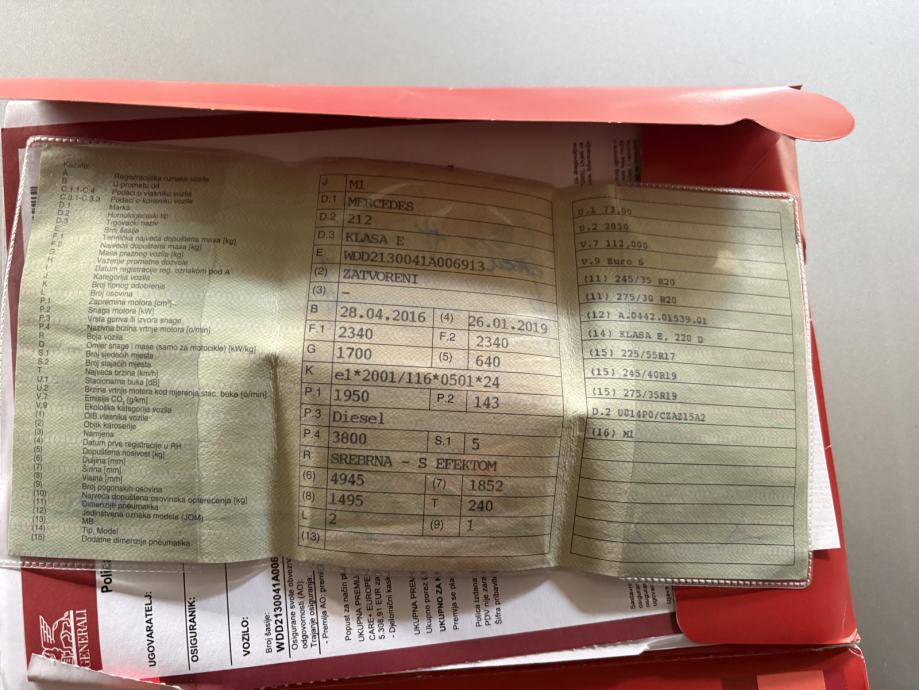 Kazalo:
A Registracijska oznaka vozila
B U prometu od
C.1.1-C.4 Podaci o vlasniku vozila
C.3.1-C.3.3 Podaci o korisniku vozila
D.1 Marka
D.2 Homologacijski tip
D.3 Trgovački naziv
E Broj šasije
F.1 Tehnička najveća dopuštena masa [kg]
F.2 Najveća dopuštena masa [kg]
G Masa praznog vozila [kg]
H Važenje prometne dozvole
I Datum registracije reg. oznakom pod A
J Kategorija vozila
K Broj tipnog odobrenja
L Broj osovina
P.1 Zapremina motora [cm³]
P.2 Snaga motora [kW]
P.3 Vrsta goriva ili izvora snage
P.4 Nazivna brzina vrtnje motora [o/min]
R Boja vozila
Q Omjer snage i mase (samo za motocikle) [kW/kg]
S.1 Broj sjedaćih mjesta
S.2 Broj stajaćih mjesta
T Najveća brzina [km/h]
U.1 Stacionarna buka [dB]
U.2 Brzina vrtnje motora kod mjerenja stac. buke [o/min]
V.7 Emisija CO₂ [g/km]
V.9 Ekološka kategorija vozila
(1) OIB vlasnika vozila
(2) Oblik karoserije
(3) Namjena
(4) Datum prve registracije u RH
(5) Dopuštena nosivost [kg]
(6) Duljina [mm]
(7) Širina [mm]
(8) Visina [mm]
(9) Broj pogonskih osovina
(10) Najveća dopuštena osovinska opterećenja [kg]
(11) Dimenzije pneumatika
(12) Jedinstvena oznaka modela (JOM)
(13) MB
(14) Tip, Model
(15) Dodatne dimenzije pneumatika
J M1
D.1 MERCEDES
D.2 212
D.3 KLASA E
E WDD2130041A006913
(2) ZATVORENI
(3) -
B 28.04.2016 (4) 26.01.2019
F.1 2340 F.2 2340
G 1700 (5) 640
K e1*2001/116*0501*24
P.1 1950 P.2 143
P.3 Diesel
P.4 3800 S.1 5
R SREBRNA - S EFEKTOM
(6) 4945 (7) 1852
(8) 1495 T 240
L 2 (9) 1
(13)
U.1 73,00
U.2 2850
V.7 112,000
V.9 Euro 6
(11) 245/35 R20
(11) 275/30 R20
(12) A.0442.01539.01
(14) KLASA E, 220 D
(15) 225/55R17
(15) 245/40R19
(15) 275/35R19
D.2 U014P0/CZAZ15A2
(16) M1
GENERALI
Polic
UGOVARATELJ:
OSIGURANIK:
VOZILO:
Broj šasije:
WDD2130041A006
Osigurane svote obvezn
odgovornosti (AO):
Trajanje osiguranja
- Premija AO: premi
Popust za način pl
UKUPNA PREMIJ
CARE+ EUROPE
5.308,91 EUR za
- Djelimični kask
UKUPNA PREM
Ukupno porez (
UKUPNO ZA N
Premija se pla
Polica izdana
PDV nije zar
Šifra pribavite